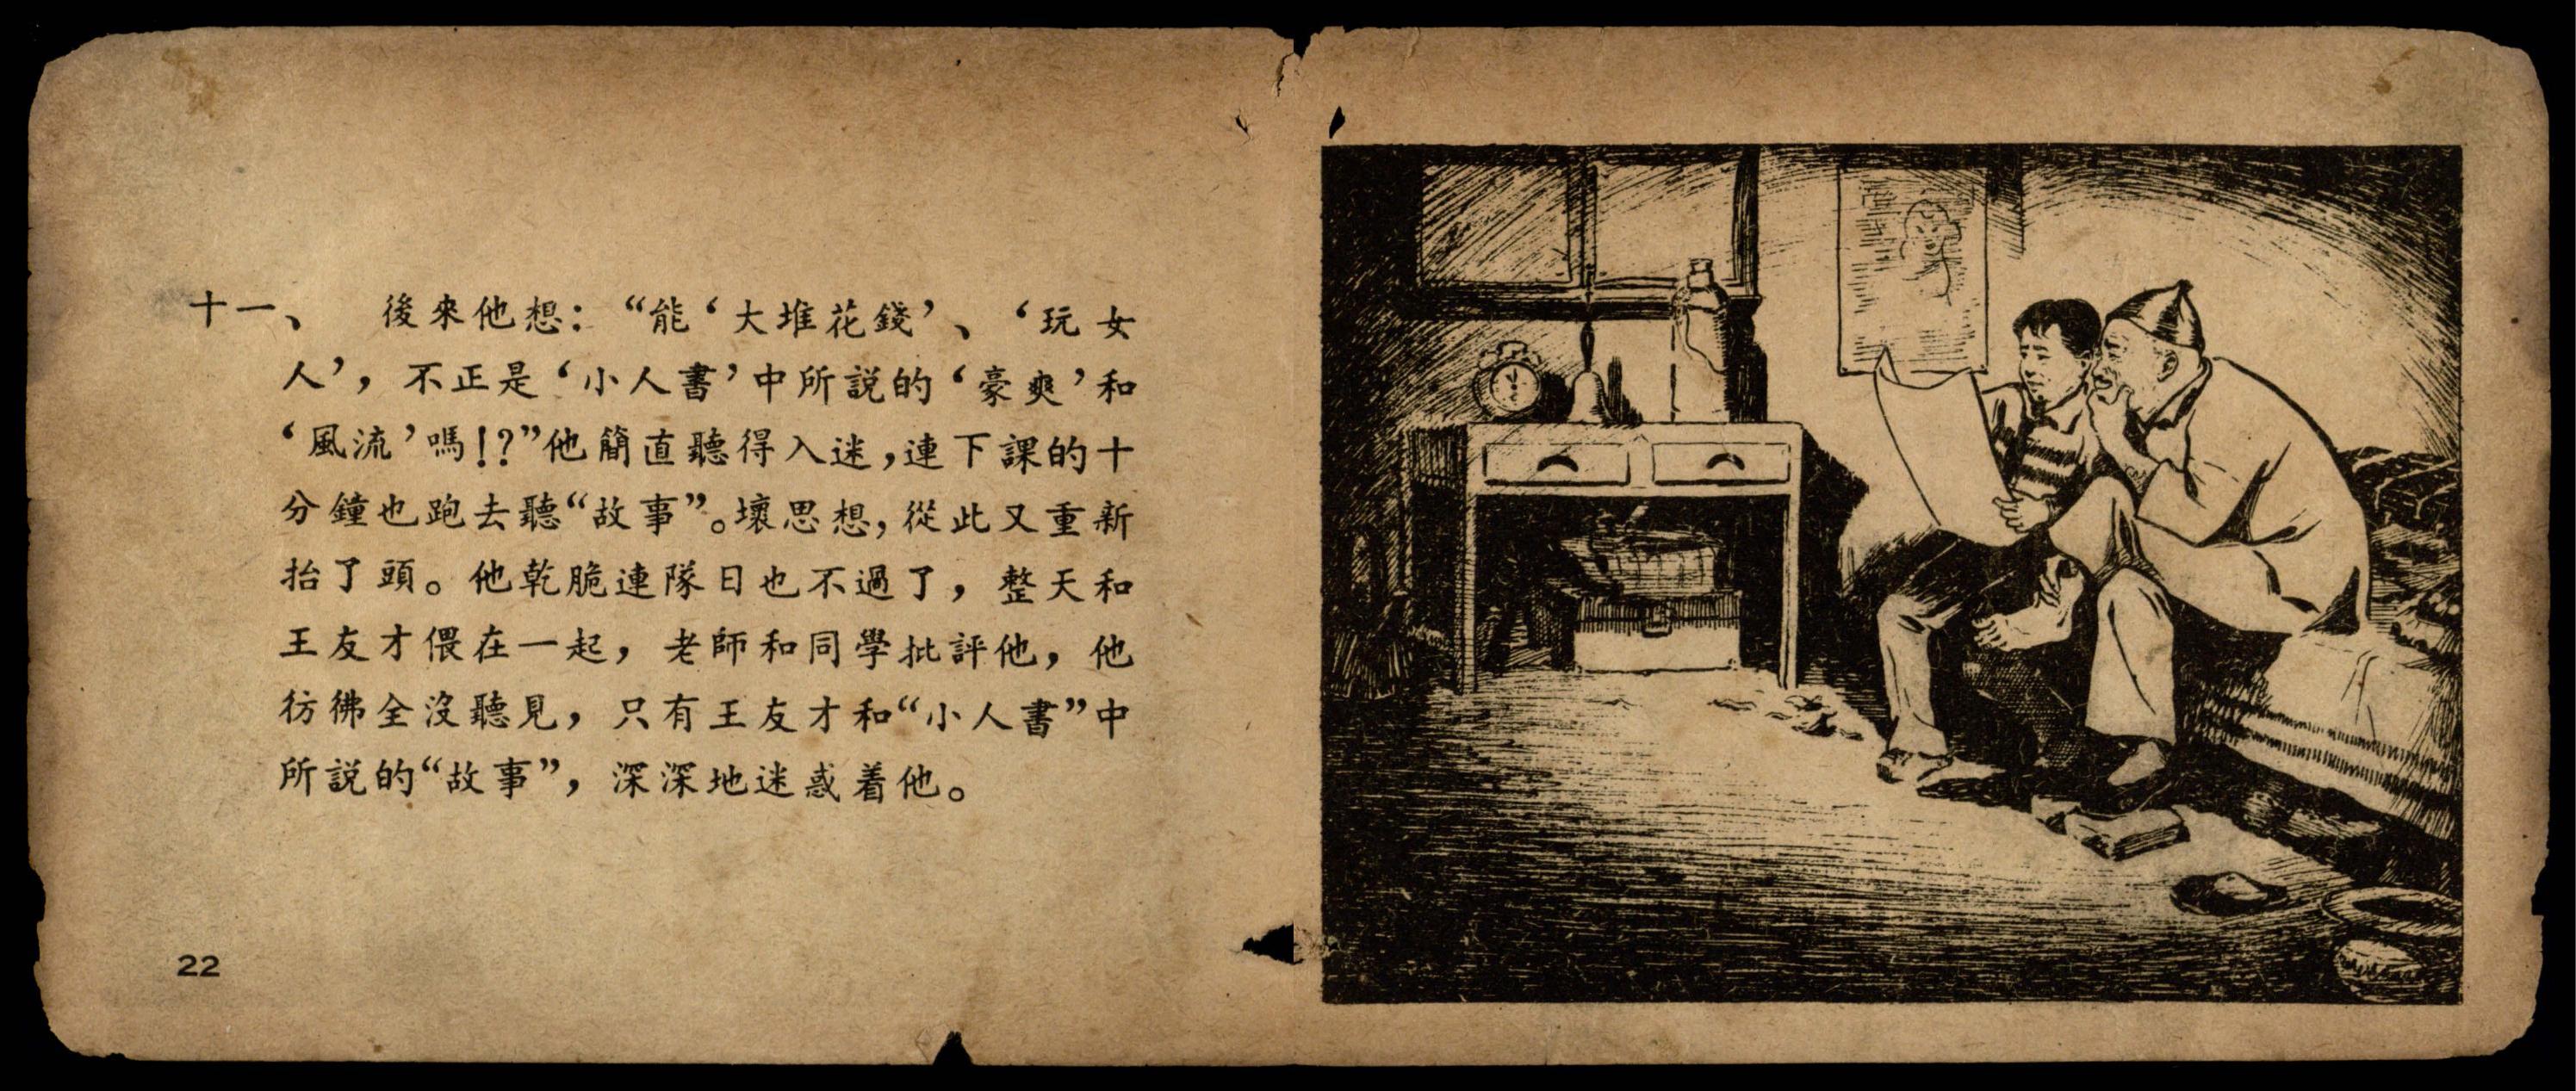 十一、　後來他想：“能‘大堆花錢’、‘玩女
人’，不正是‘小人書’中所説的‘豪爽’和
‘風流’嗎！？”他簡直聽得入迷，連下課的十
分鐘也跑去聽“故事”。壞思想，從此又重新
抬了頭。他乾脆連隊日也不過了，整天和
王友才偎在一起，老師和同學批評他，他
彷彿全沒聽見，只有王友才和“小人書”中
所説的“故事”，深深地迷惑着他。
22